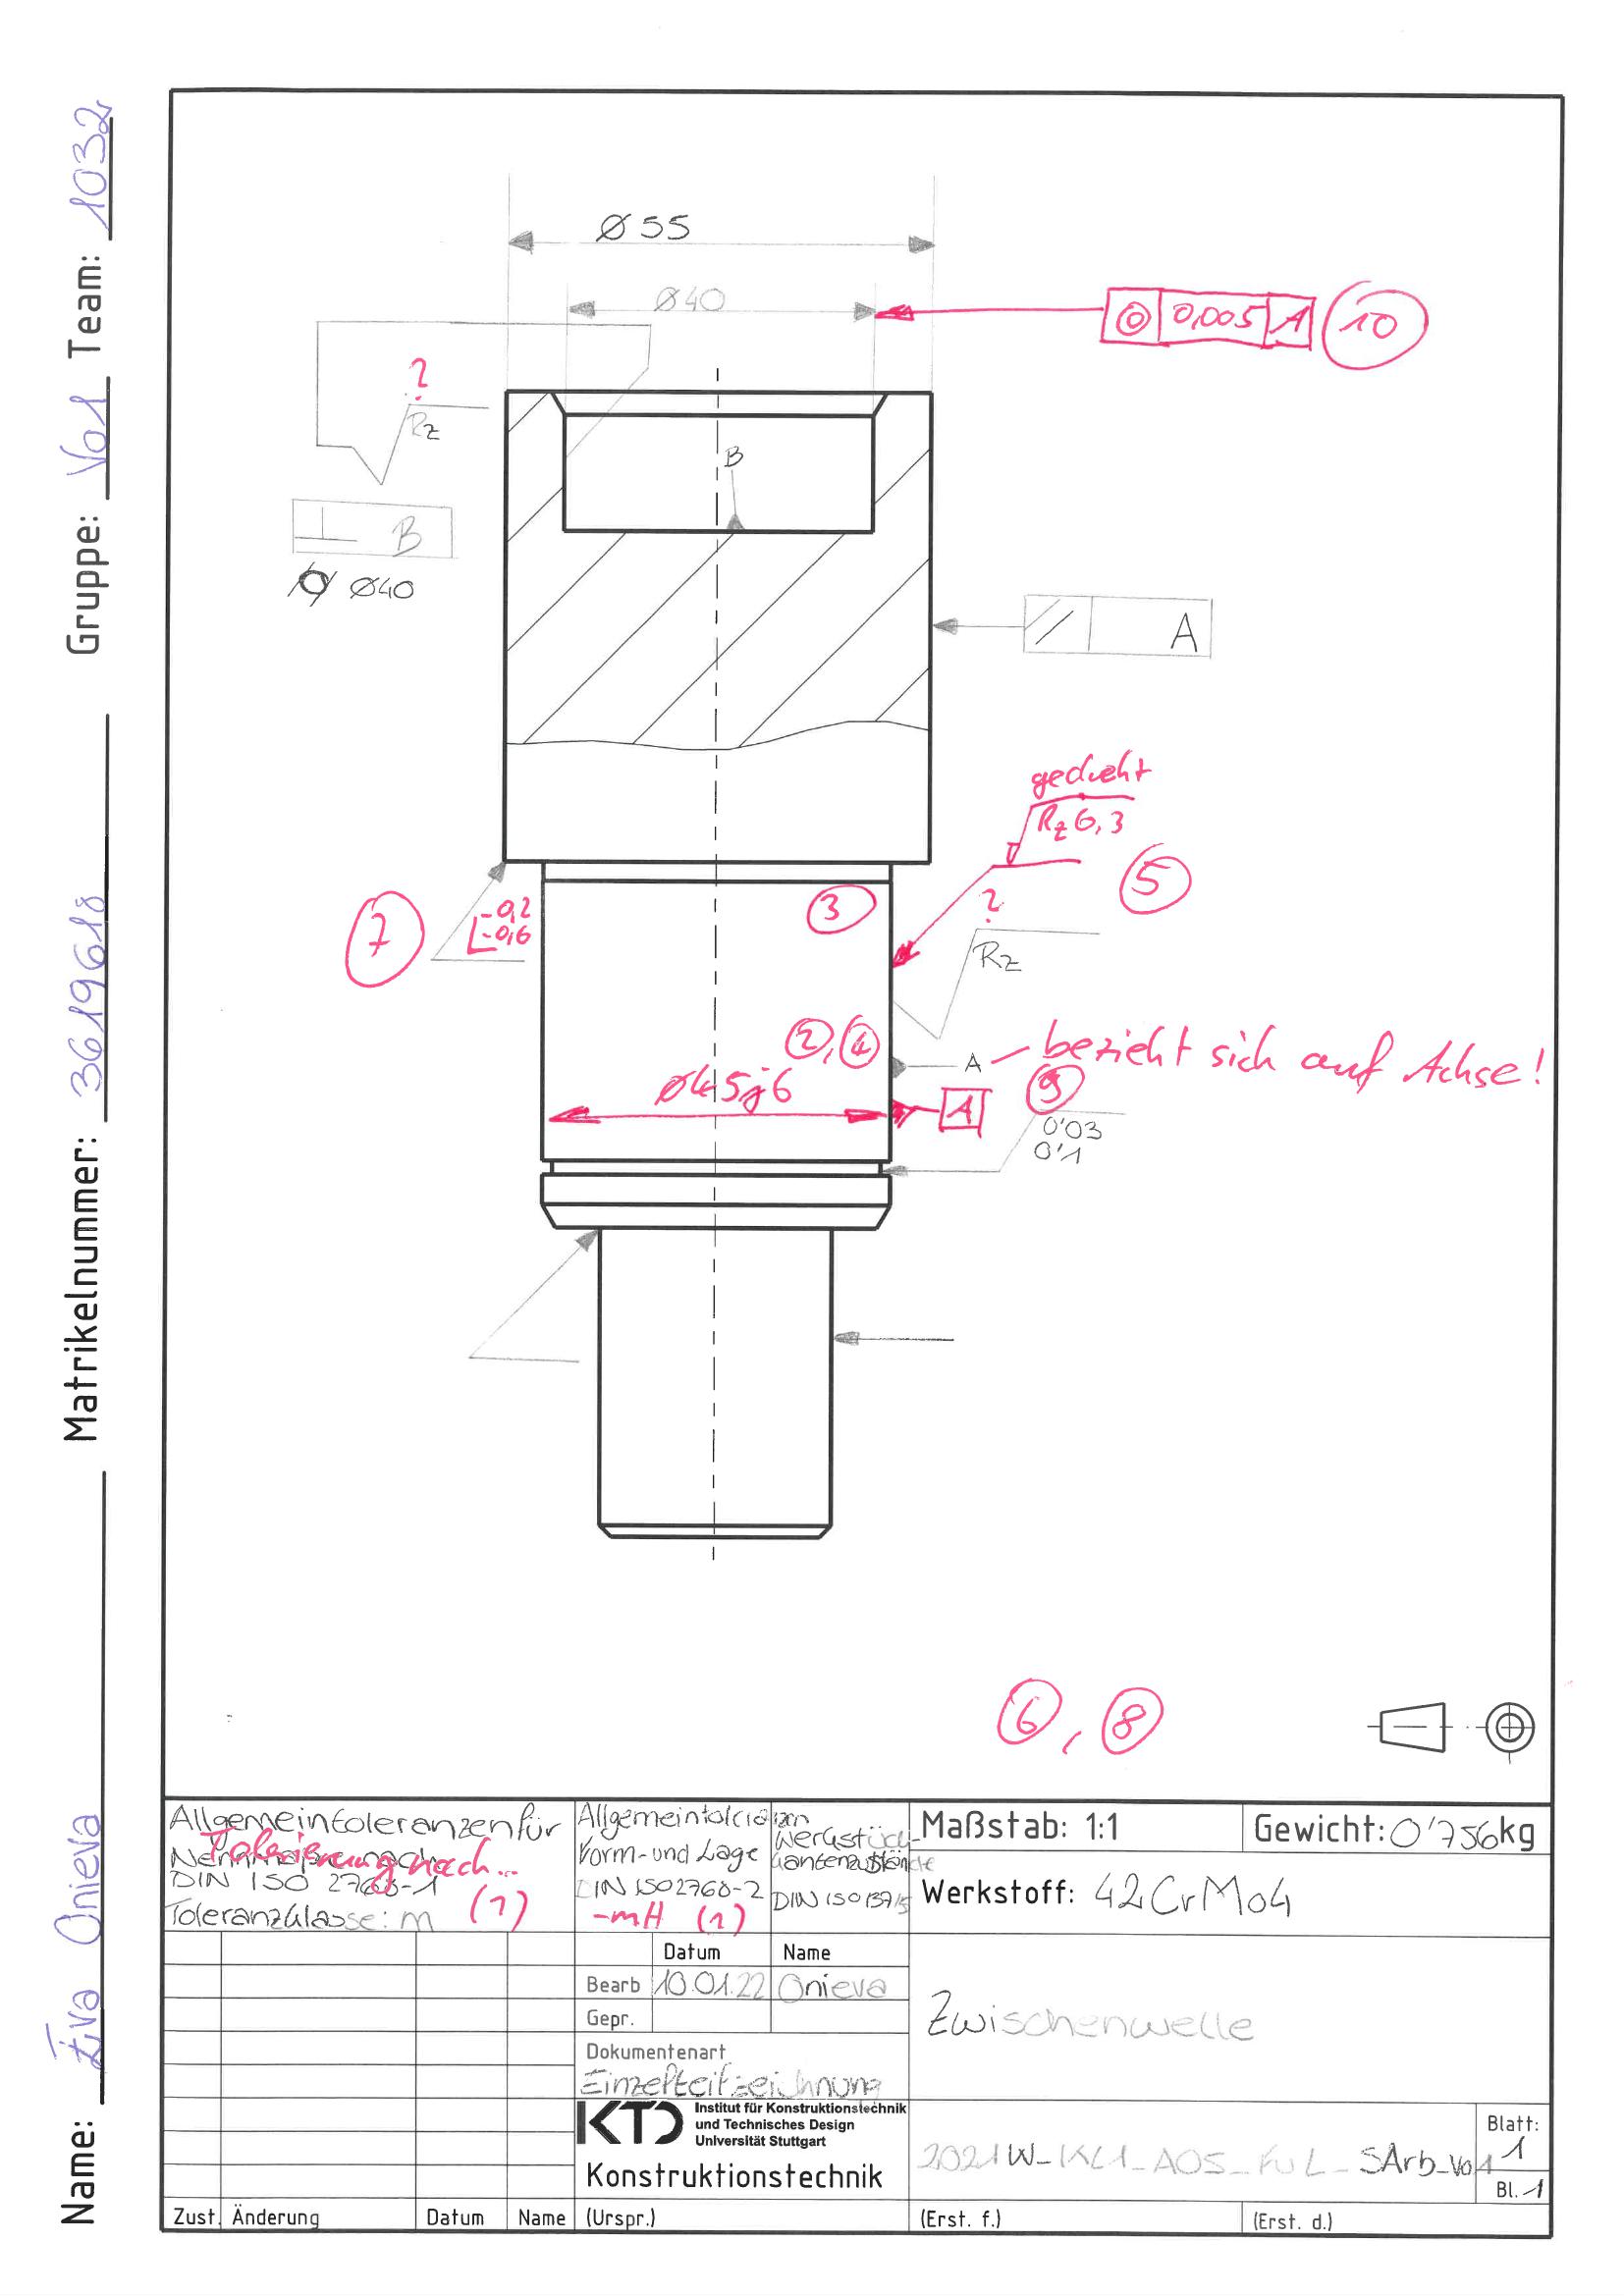 Name: Eva Onieva Matrikelnummer: 3619618 Gruppe: Vo1 Team: 1032
Ø55
Ø40
◎ 0,005 A 10
?
Rz
B
⊥ B
Ø40
// A
gedreht
Rz 6,3
5
3
7
-0,2
-0,6
?
Rz
2, 4
A – bezieht sich auf Achse!
Ø45j6
A
9
0'03
0'1
6, 8
Allgemeintoleranzen für
Tolerierung nach...
DIN ISO 2768-1
Toleranzklasse: m (1)
Allgemeintoleranzen
Form- und Lage
DIN ISO2768-2
-mH (1)
Werkstück-
kantenzustände
DIN ISO 13715
Maßstab: 1:1
Gewicht: 0'756kg
Werkstoff: 42CrMo4
Datum Name
Bearb 10.01.22 Onieva
Gepr.
Dokumentenart
Einzelteilzeichnung
Zwischenwelle
KTD Institut für Konstruktionstechnik
und Technisches Design
Universität Stuttgart
Konstruktionstechnik
2021W_KL1_AOS_FuL_SArb_Vo1
Blatt:
1
Bl. 1
Zust. Änderung Datum Name (Urspr.) (Erst. f.) (Erst. d.)